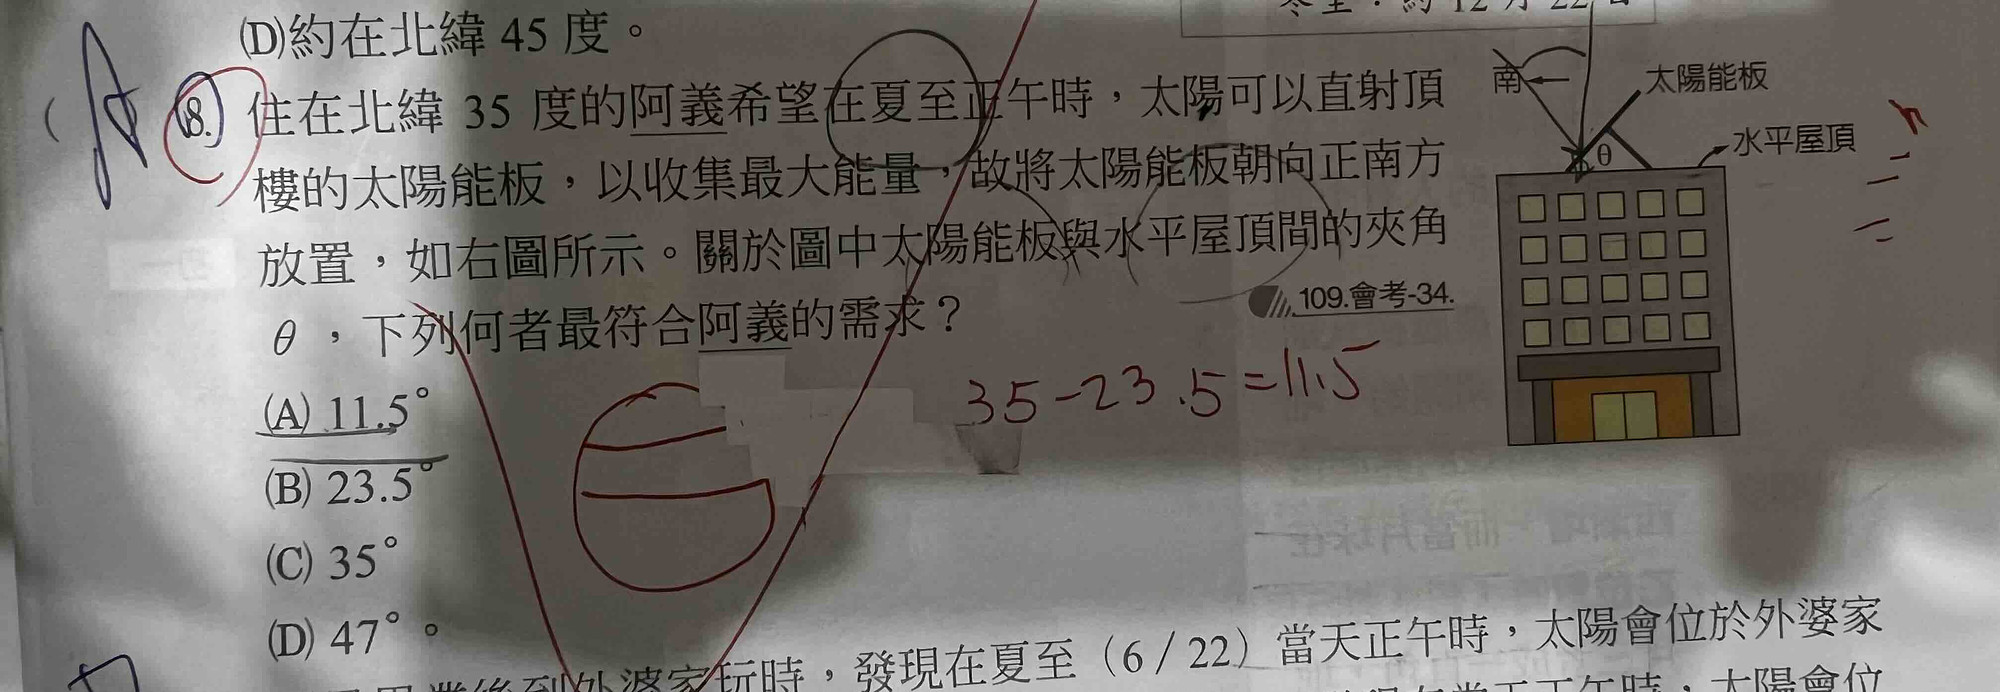 (D)約在北緯 45 度。
A 8. 住在北緯 35 度的阿義希望在夏至正午時，太陽可以直射頂
樓的太陽能板，以收集最大能量，故將太陽能板朝向正南方
放置，如右圖所示。關於圖中太陽能板與水平屋頂間的夾角
θ，下列何者最符合阿義的需求？
109.會考-34.
(A) 11.5°
(B) 23.5°
(C) 35°
(D) 47°。
35-23.5=11.5
南
太陽能板
θ
水平屋頂
外婆家玩時，發現在夏至（6/22）當天正午時，太陽會位於外婆家